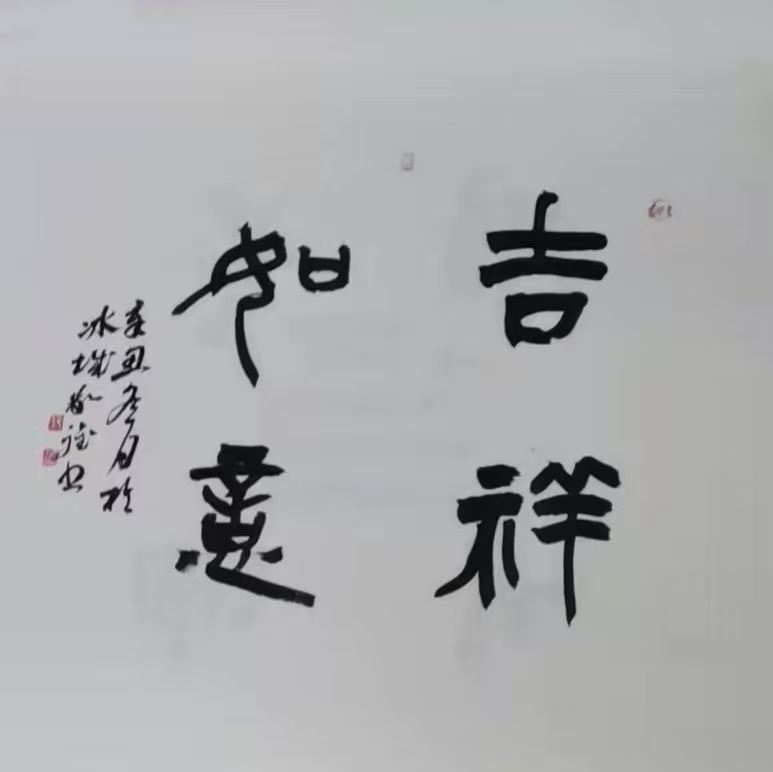 吉祥
如意
辛丑冬月於
冰城
书